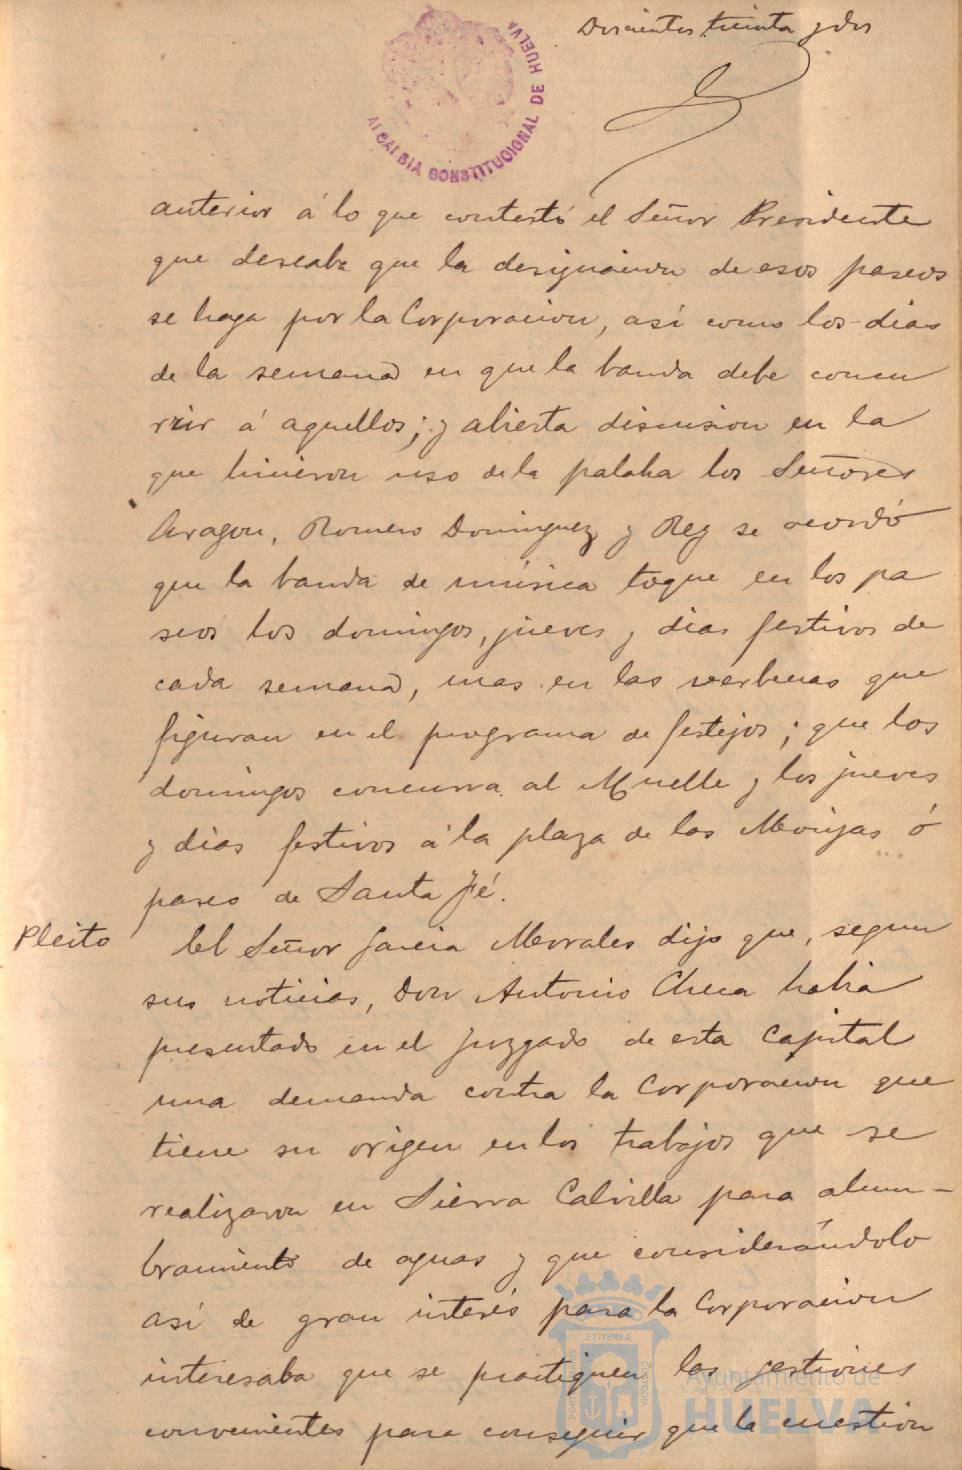 Doscientos treinta y dos
ALCALDIA CONSTITUCIONAL DE HUELVA
anterior á lo que contestó el Señor Presidente
que deseaba que la designacion de esos paseos
se haga por la Corporacion, así como los dias
de la semana en que la banda debe concu
rrir á aquellos; y abierta discusion en la
que hicieron uso de la palaba los Señores
Aragon, Romero Dominguez y Rey se acordó
que la banda de música toque en los pa
seos los domingos, jueves y dias festivos de
cada semana, mas en las verbenas que
figuran en el programa de festejos; que los
domingos concurra al Muelle y los jueves
y dias festivos á la plaza de las Monjas ó
paseo de Santa Fé.
Pleito
El Señor Garcia Morales dijo que, segun
sus noticias, Don Antonio Checa habia
presentado en el juzgado de esta Capital
una demanda contra la Corporacion que
tiene su origen en los trabajos que se
realizaron en Sierra Calvilla para alum-
bramiento de aguas y que considerándolo
así de gran interés para la Corporacion
interesaba que se practiquen las gestiones
convenientes para conseguir que la cuestion
Ayuntamiento de
HUELVA